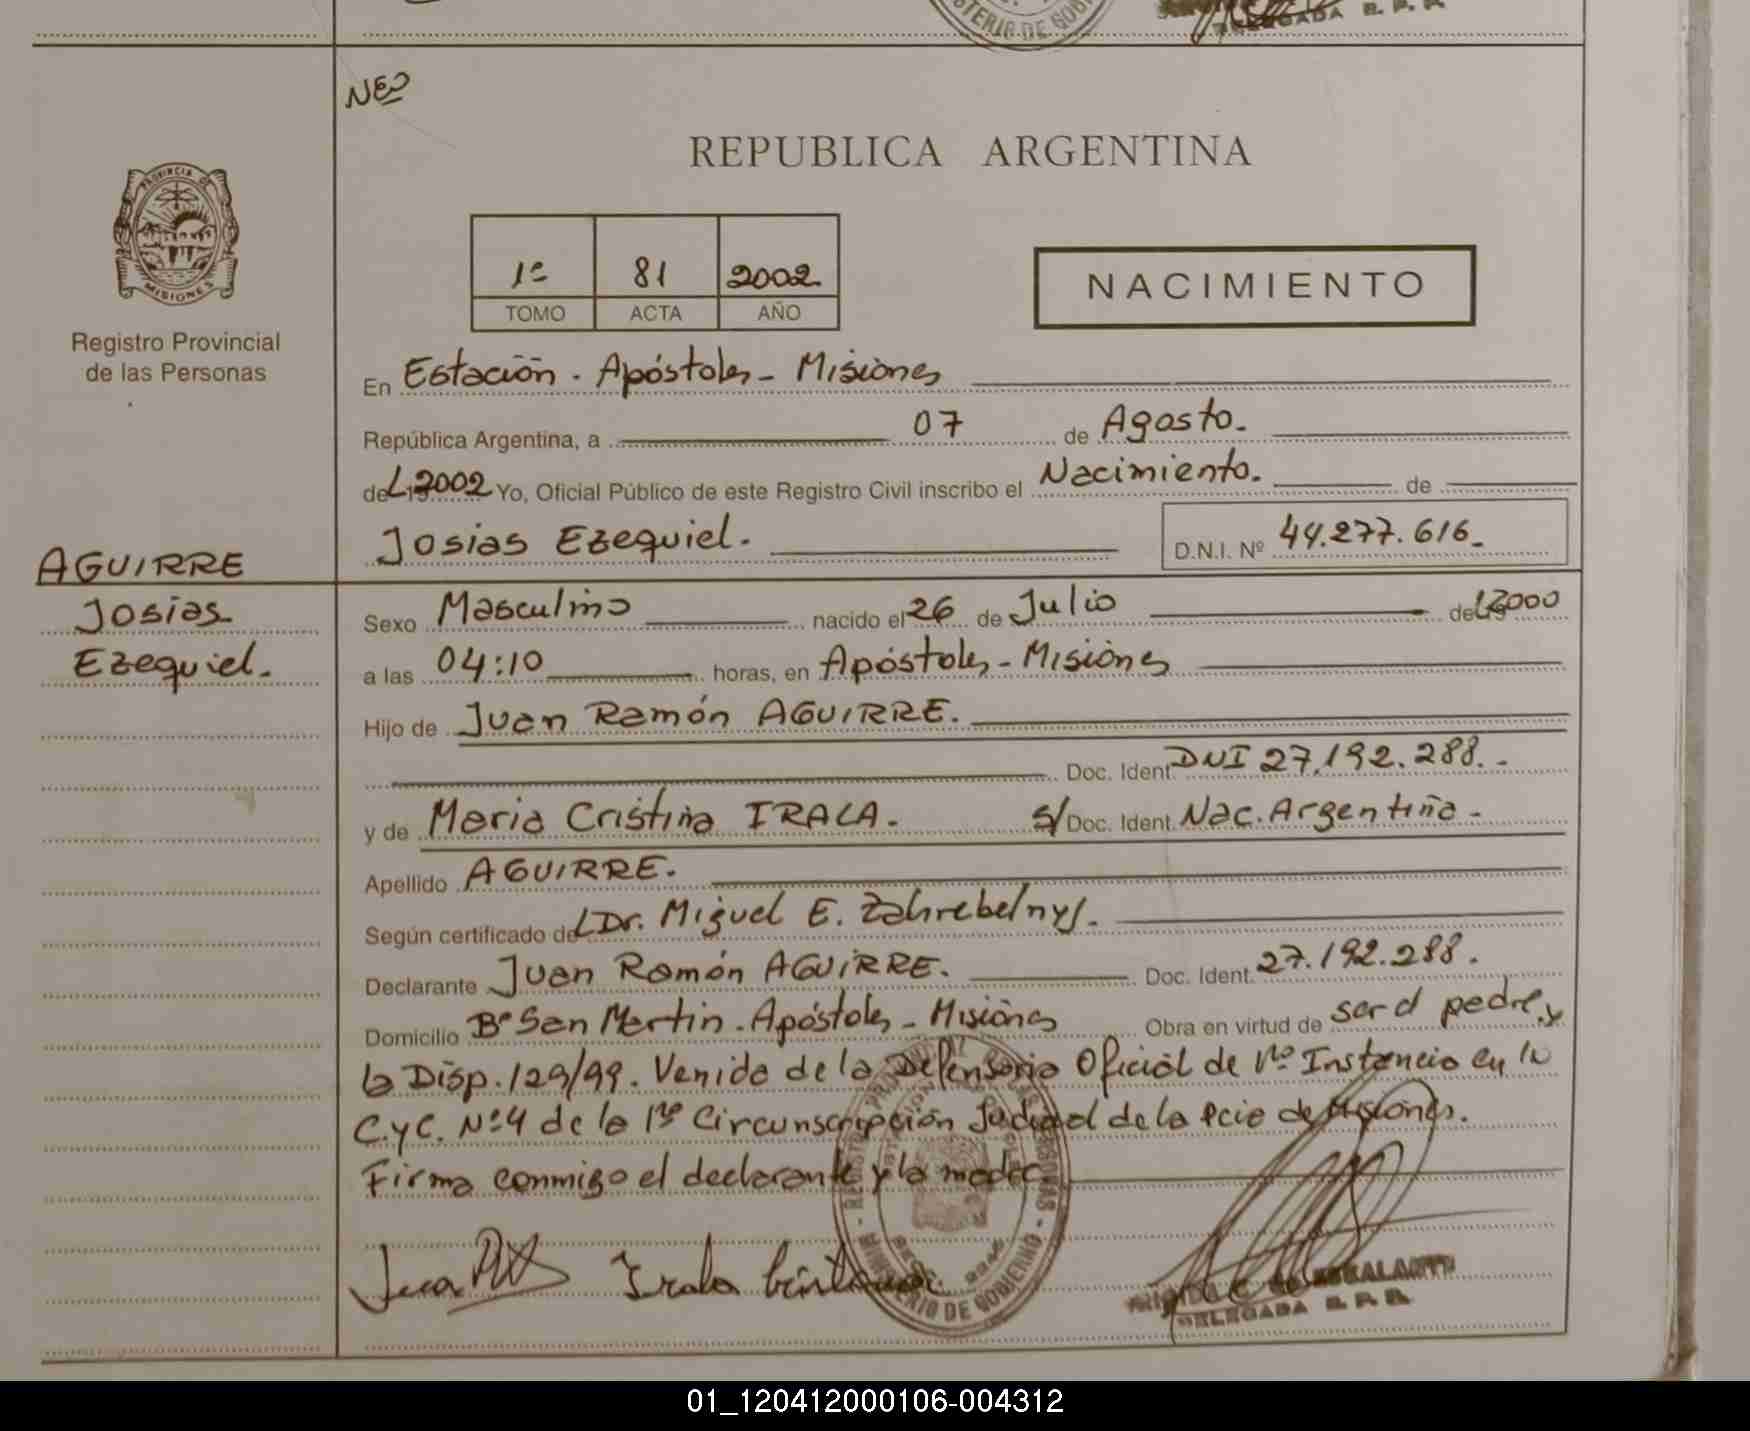 MINISTERIO DE GOBI
DELEGADA R. P. P.
NEO
PROVINCIA DE
MISIONES
Registro Provincial
de las Personas
REPUBLICA ARGENTINA
1º 81 2002
TOMO ACTA AÑO
NACIMIENTO
En Estación - Apóstoles - Misiones
República Argentina, a 07 de Agosto.
del 2002 Yo, Oficial Público de este Registro Civil inscribo el Nacimiento. de
Josias Ezequiel. D.N.I. Nº 44.277.616.
AGUIRRE
Josias
Ezequiel.
Sexo Masculino nacido el 26 de Julio del 2000
a las 04:10 horas, en Apóstoles - Misiones
Hijo de Juan Ramón AGUIRRE.
Doc. Ident. DNI 27.192.288.-
y de Maria Cristina IRALA. s/ Doc. Ident. Nac. Argentina -
Apellido AGUIRRE.
Según certificado del Dr. Miguel E. Zahrebelnyj.
Declarante Juan Ramón AGUIRRE. Doc. Ident. 27.192.288.
Domicilio Bº San Martin - Apóstoles - Misiones Obra en virtud de ser el padre y
la Disp. 129/99. Venida de la Defensoria Oficial de 1ra Instancia en lo
C.yC. Nº 4 de la 1ra Circunscripción Judicial de la Pcia de Misiones.
Firma conmigo el declarante y la madre
Juan
Irala Cristina
MINISTERIO DE GOBIERNO
DELEGADA R. P. P.
01_120412000106-004312